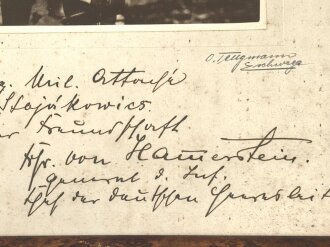 O. Tellgmann
Eschwege
Mil. Attaché
Stojakowics
Freundschaft
Frhr. von Hammerstein.
General d. Inf.
Chef der deutschen Heeresleit